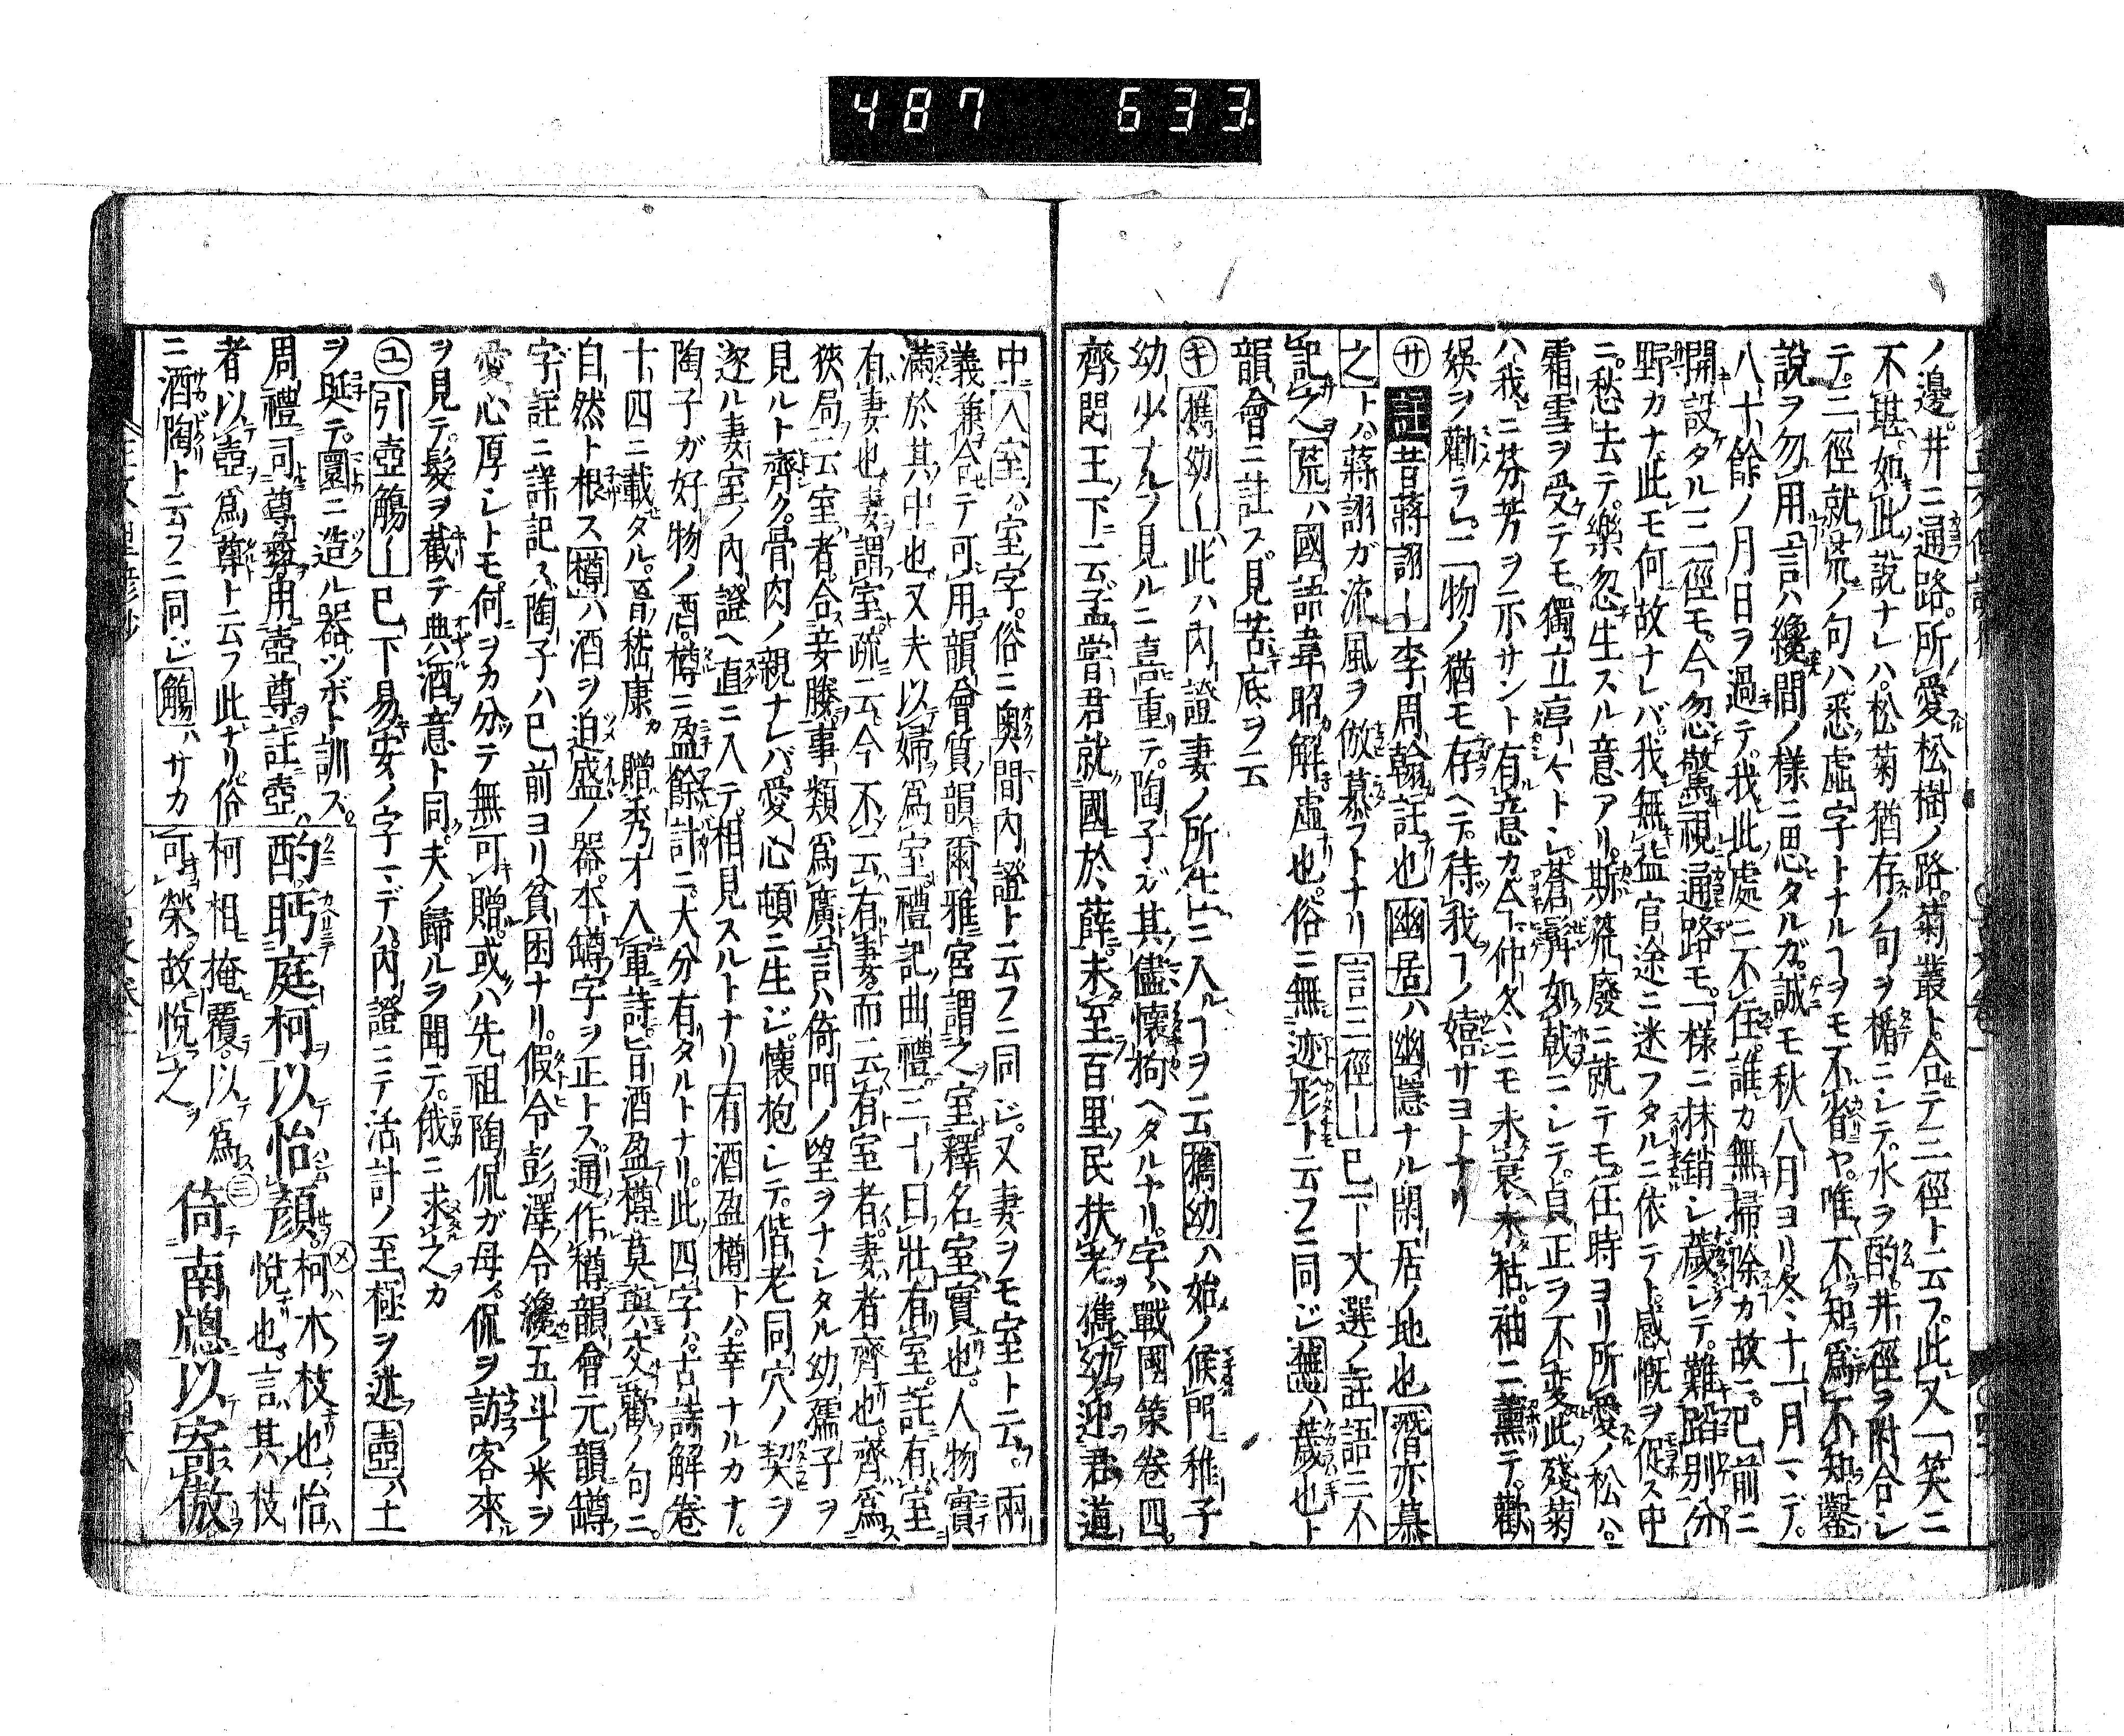 487 633.
ノ邊。井ニ通路。所愛松樹ノ路。菊叢ト。合テ三徑ト云フ。此又一笑ニ
不堪。如此說ナレハ。松菊猶存ノ句ヲ楯ニシテ。水ヲ酌。井徑ヲ附合シ
テ。三徑就荒ノ句ハ。悉虛字トナルヿヲモ不省ヤ。唯不知爲不知鑿
說ヲ勿用言ハ纔間ノ樣ニ思タルガ。誠モ秋八月ヨリ冬十一月マデ。
八十餘ノ月日ヲ過テ。我此處ニ不在。誰カ無掃除カ故ニ。巳前ニ
開設タル三徑モ。今忽驚視通路モ。一樣ニ抹銷シ薉シテ。難蹈別分
野カナ此モ何故ナレバ。我無益官途ニ迷フタルニ依テト。感慨ヲ促ス中
ニ。愁去テ。樂忽生スル意アリ。斯荒廢ニ就テモ。任時ヨリ所愛ノ松ハ。
霜雪ヲ受テモ。獨立亭々トシ。蒼髯如戟ニシテ。貞正ヲ不変此殘菊
ハ我ニ芬芳ヲ示サント有意カ。今仲冬ニモ未衰未枯。袖ニ薰テ。歡
娛ヲ勸ラレ。二物ノ猶モ存ヘテ。待我ヿノ嬉サヨトナリ
㋚註昔蔣詡ー李周翰註也幽居ハ幽隱ナル閑居ノ地也潛亦慕
之トハ。蔣詡ガ流風ヲ倣慕フトナリ言三徑ー巳下文選ノ註語ニ不
記之荒ハ國語韋昭解虛也。俗ニ無迹形ト云フニ同ジ蕪ハ薉也ト
韻會ニ註ス。見苦底ヲ云
㋖攜幼ー此ハ內證妻ノ所在ニ入ルヿヲ云攜幼ハ始ノ候門稚子
幼少ナルヲ見ルニ喜重テ。陶子ガ其儘懷拘ヘタルナリ。字ハ戰國策卷四。
齊閔王下ニ云孟嘗君就國於薛。未至百里。民扶老攜幼迎君道
中入室ハ。室字。俗ニ奧間內證ト云フニ同ジ。又妻ヲモ室ト云。兩
義兼合テ可用韻會質韻爾雅宮謂之室釋名室實也。人物實
滿於其中也又夫以婦爲室。禮記曲禮三十曰壯有室。註有室
有妻也妻謂室。疏云今不云有妻。而云有室者。妻者齊也。齊爲
狹局云室者。合妾媵事類爲廣言ハ倚門ノ望ヲナシタル幼孺子ヲ
見ルト齊ク。骨肉ノ親ナレバ。愛心頓ニ生ジ。懷抱シテ。偕老同穴ノ契ヲ
逐ル妻室ノ內證ヘ直ニ入テ。相見スルトナリ有酒盈樽トハ。幸ナルカナ。
陶子ガ好物ノ酒。樽ニ盈餘計ニ。大分有タルトナリ。此四字ハ。古詩解卷
十四ニ載タル。晉嵆康贈秀才入軍詩。旨酒盈樽莫與交歡ノ句ニ。
自然ト根ス樽ハ酒ヲ迫盛ノ器。本罇字ヲ正トス。通作樽韻會元韻罇
字註ニ詳記ス陶子ハ巳前ヨリ貧困ナリ。假令彭澤令纔五斗ノ米ヲ
愛心厚シトモ。何ヲカ分テ無可贈。或ハ先祖陶侃ガ母ハ。侃ヲ訪客來
ヲ見テ。髮ヲ截テ典酒意ト同。夫ノ歸ルヲ聞テ。俄ニ求之カ
㋴引壺觴ー巳下易安ノ字マデハ。內證ニテ活計ノ至極ヲ述壺ハ土
ヲ埏テ。圜ニ造ル器。ツボト訓ス。
周禮司尊彝用壺尊。註壺
者以壺爲尊ト云フ此ナリ俗
ニ酒陶ト云フニ同ジ觴ハサカ
酌。眄庭柯以怡顏。㋱柯ハ木枝也怡ハ
悅也。言其枝
柯相掩覆。以爲
可榮。故悅之
㋯倚南牕以寄傲